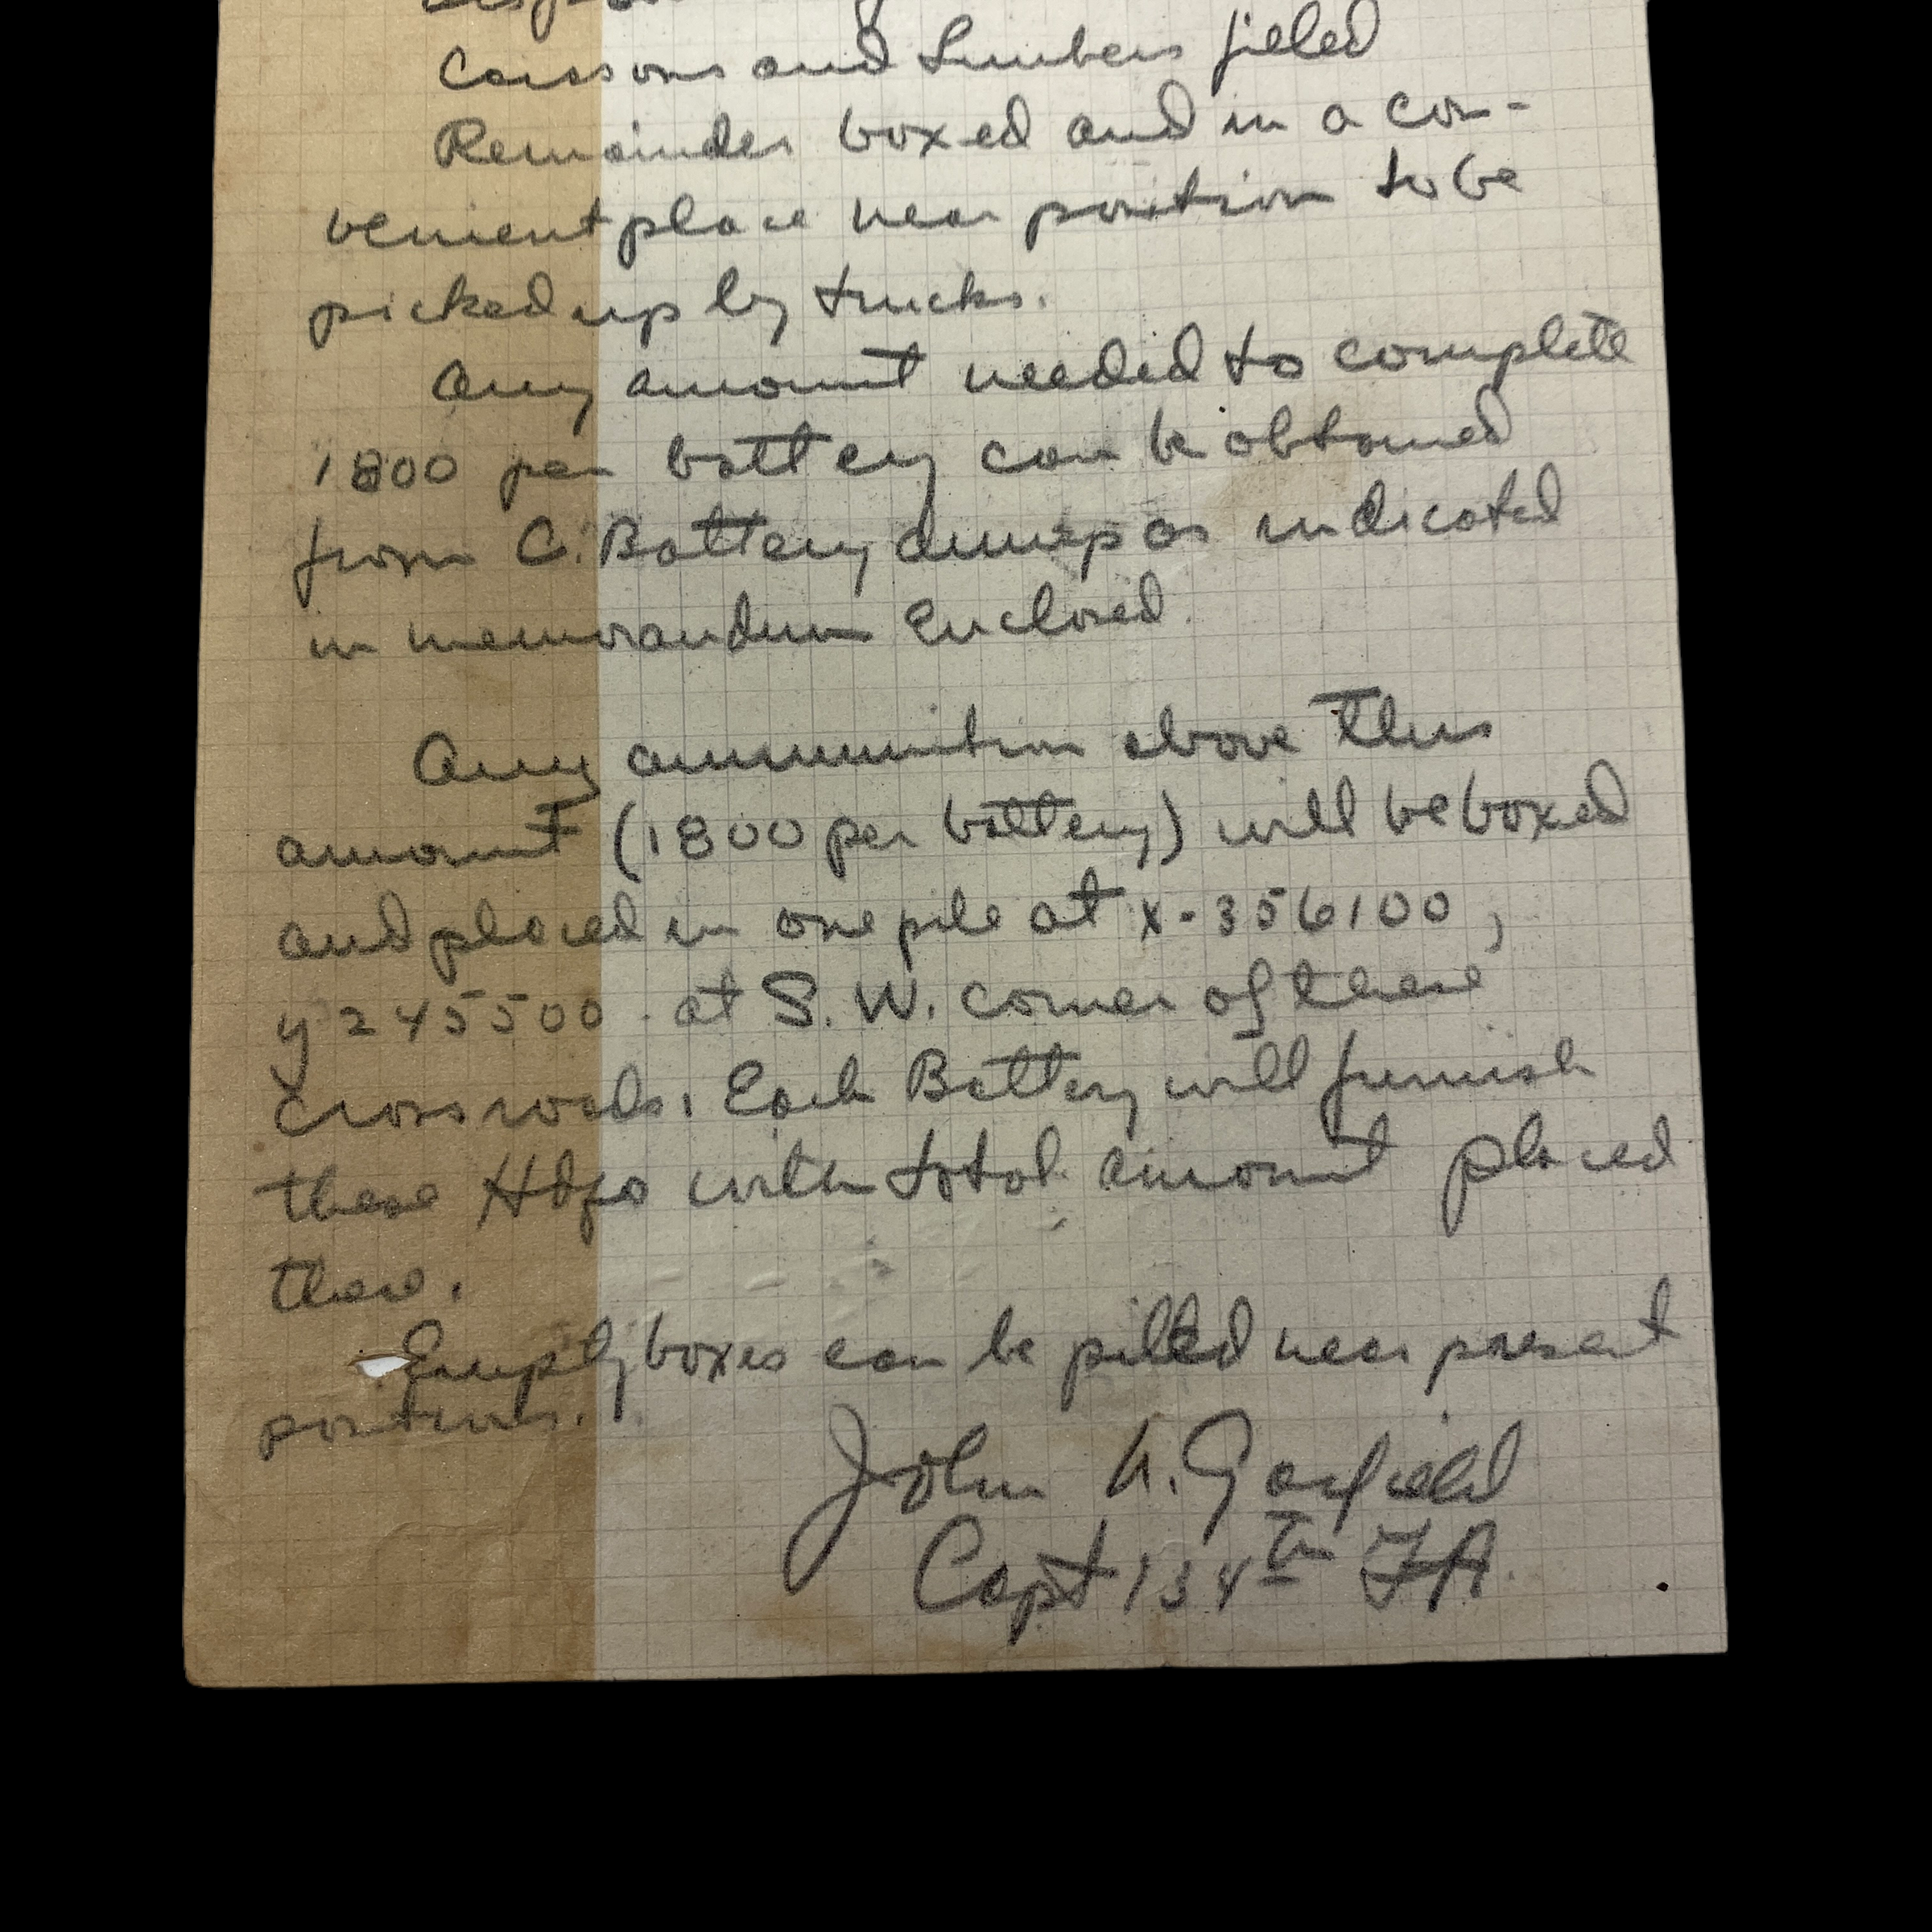 Caissons and Limbers filled
Remainder boxed and in a con-
venient place near position to be
picked up by trucks.
Any amount needed to complete
1800 per battery can be obtained
from C. Battery dump as indicated
in memorandum Enclosed.
Any ammunition above this
amount (1800 per battery) will be boxed
and placed in one pile at x-356100,
y 245500 - at S. W. corner of these
Crossroads. Each Battery will furnish
these Hdqs with total amount placed
there.
Empty boxes can be pilled near present
positions.
John A. Garfield
Capt 134th FA